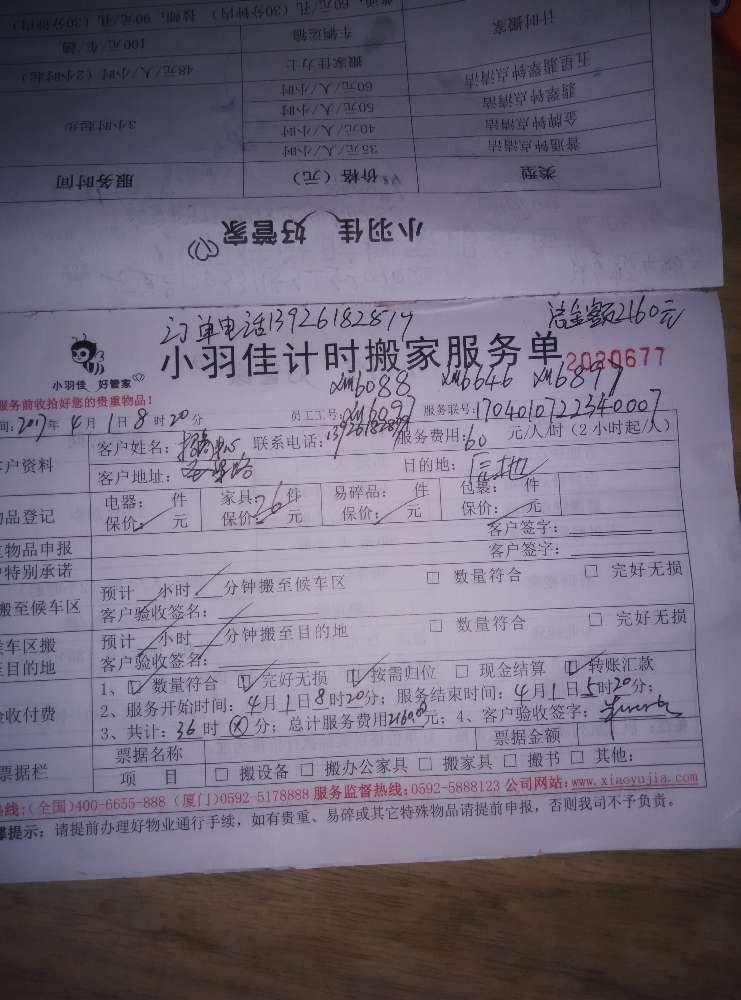 普通，60元/孔（30分钟内） 技师，90元/孔（30分钟内）
计时搬家 车辆运输 100元/车/趟
搬家佳力士 48元/人/小时（2小时起）
五星翡翠钟点清洁 60元/人/小时
翡翠钟点清洁 50元/人/小时
金牌钟点清洁 40元/人/小时 3小时起步
普通钟点清洁 35元/人/小时
类型 价格（元） 服务时间
小羽佳 好管家
订单电话13926182817 总金额2160元
小羽佳 好管家
小羽佳计时搬家服务单 2020677
xm6088 xm6646 xm6897
服务前收拾好您的贵重物品！
间:2017年4月1日8时20分 员工工号:xm6097 服务联号:1704010722340007
户资料 客户姓名: 联系电话: 服务费用:60 元/人/时（2小时起/人）
客户地址: 目的地:
物品登记 电器: 件 家具:26件 易碎品: 件 包裹: 件
保价: 元 保价: 元 保价: 元 保价: 元
物品申报 客户签字:
特别承诺 客户签字:
搬至候车区 预计 小时 分钟搬至候车区 □ 数量符合 □ 完好无损
客户验收签名:
车区搬至目的地 预计 小时 分钟搬至目的地 □ 数量符合 □ 完好无损
客户验收签名:
验收付费 1、☑ 数量符合 ☑ 完好无损 ☑ 按需归位 □ 现金结算 ☑ 转账汇款
2、服务开始时间: 4月1日8时20分; 服务结束时间: 4月1日5时20分;
3、共计: 36时 ⊗ 分; 总计服务费用2160.00元; 4、客户验收签字:
票据栏 票据名称 票据金额
项 目 □ 搬设备 □ 搬办公家具 □ 搬家具 □ 搬书 □ 其他:
热线:(全国)400-6655-888 (厦门)0592-5178888 服务监督热线:0592-5888123 公司网站:www.xiaoyujia.com
提示: 请提前办理好物业通行手续，如有贵重、易碎或其它特殊物品请提前申报，否则我司不予负责。